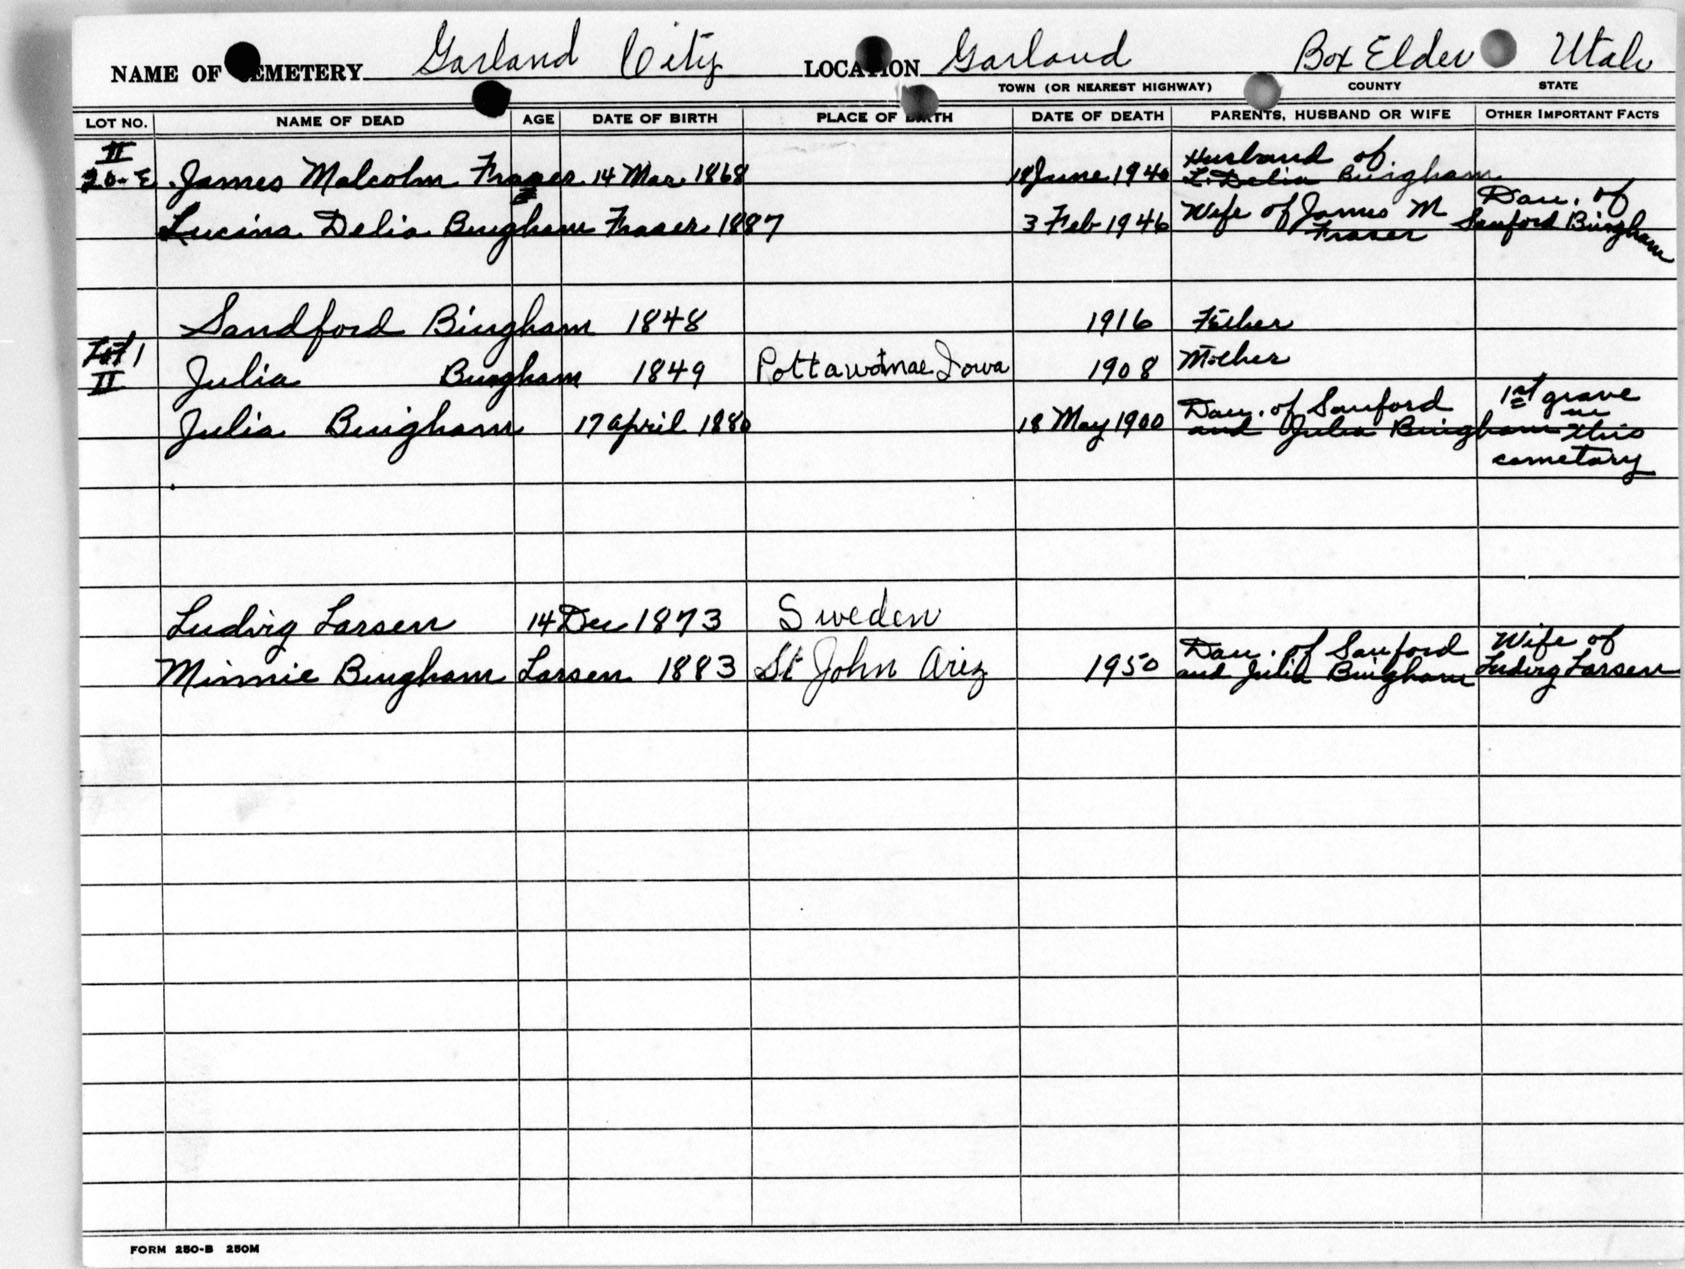 NAME OF CEMETERY Garland City LOCATION Garland Box Elder Utah
TOWN (OR NEAREST HIGHWAY) COUNTY STATE
LOT NO. NAME OF DEAD AGE DATE OF BIRTH PLACE OF BIRTH DATE OF DEATH PARENTS, HUSBAND OR WIFE OTHER IMPORTANT FACTS
II
20-E James Malcolm Fraser 14 Mar 1868 18 June 1940 Husband of
L. Delia Bingham
Lucina Delia Bingham Fraser 1887 3 Feb 1946 Wife of James M Dau. of
Fraser Sanford Bingham
Sandford Bingham 1848 1916 Father
Lot 1
II Julia Bingham 1849 Pottawatmae Iowa 1908 Mother
Julia Bingham 17 April 1880 18 May 1900 Dau. of Sanford 1st grave
and Julia Bingham in this
cemetary
Ludvig Larsen 14 Dec 1873 Sweden
Minnie Bingham Larsen 1883 St John Ariz 1950 Dau. of Sanford Wife of
and Julia Bingham Ludvig Larsen
FORM 250-B 250M